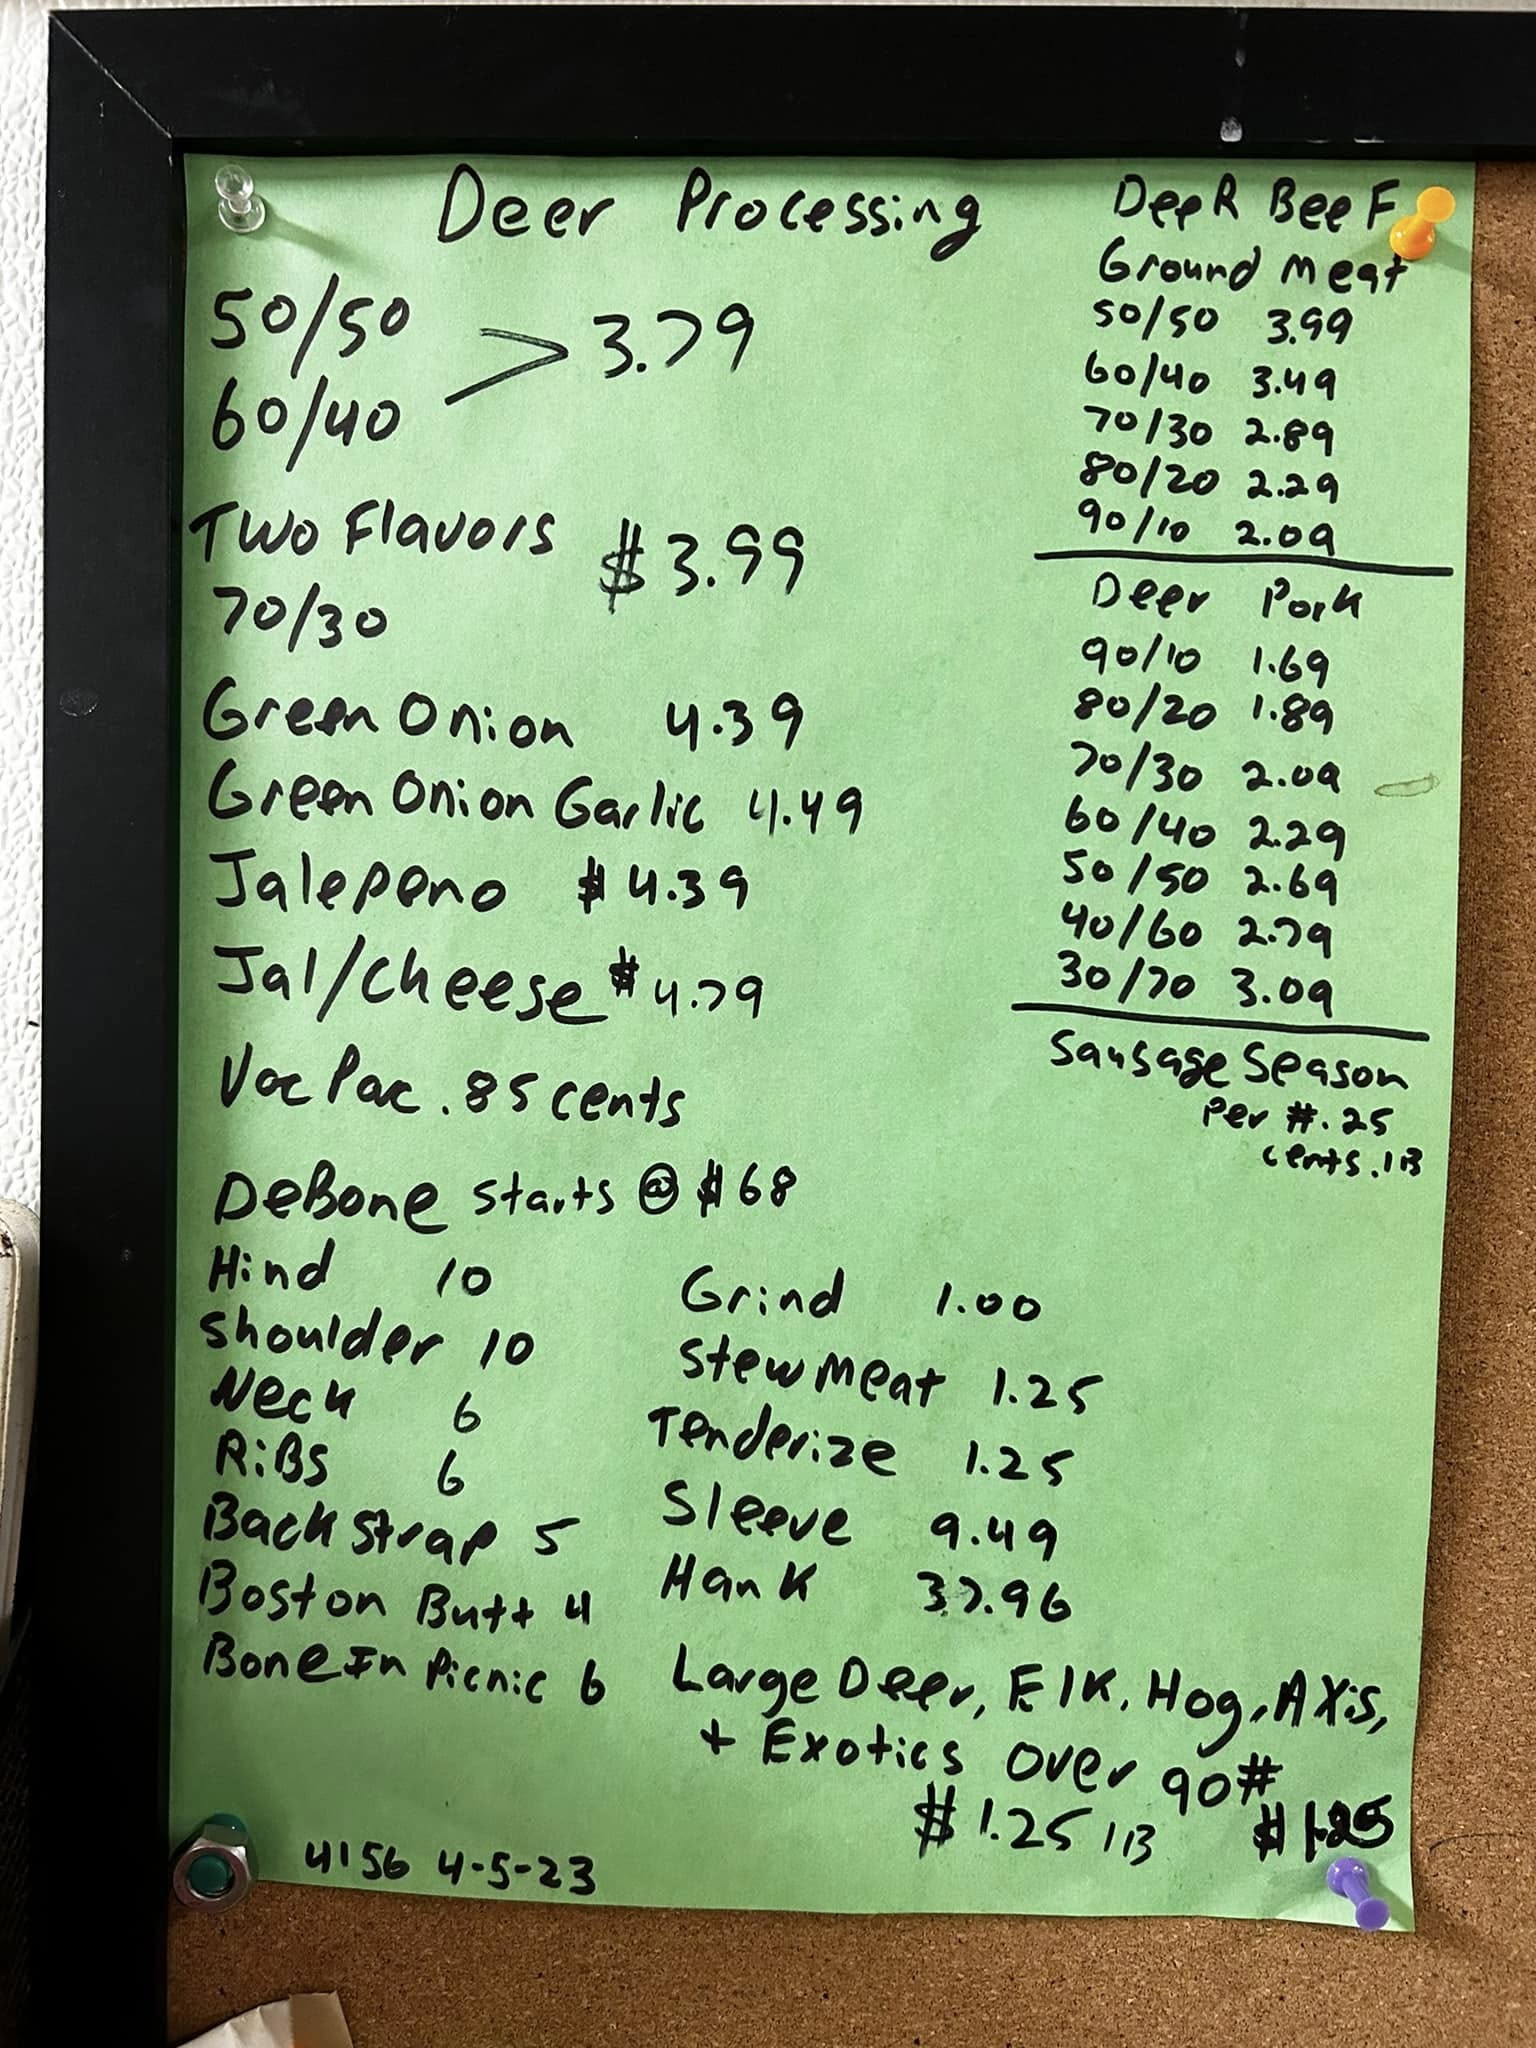 Deer Processing
50/50
60/40 > 3.79
Two Flavors $3.99
70/30
Green Onion 4.39
Green Onion Garlic 4.49
Jalepeno $4.39
Jal/Cheese $4.79
Vac Pac .85 cents
DeBone starts @ $68
Hind 10
Shoulder 10
Neck 6
RiBs 6
Back Strap 5
Boston Butt 4
Bone In Picnic 6
4156 4-5-23
DeeR BeeF
Ground Meat
50/50 3.99
60/40 3.49
70/30 2.89
80/20 2.29
90/10 2.09
Deer Pork
90/10 1.69
80/20 1.89
70/30 2.09
60/40 2.29
50/50 2.69
40/60 2.79
30/70 3.09
Sausage Season
Per #.25
cents.1B
Grind 1.00
Stew Meat 1.25
Tenderize 1.25
Sleeve 9.49
Hank 37.96
Large Deer, Elk, Hog, AXis,
+ Exotics Over 90#
$1.25 1B $1.25